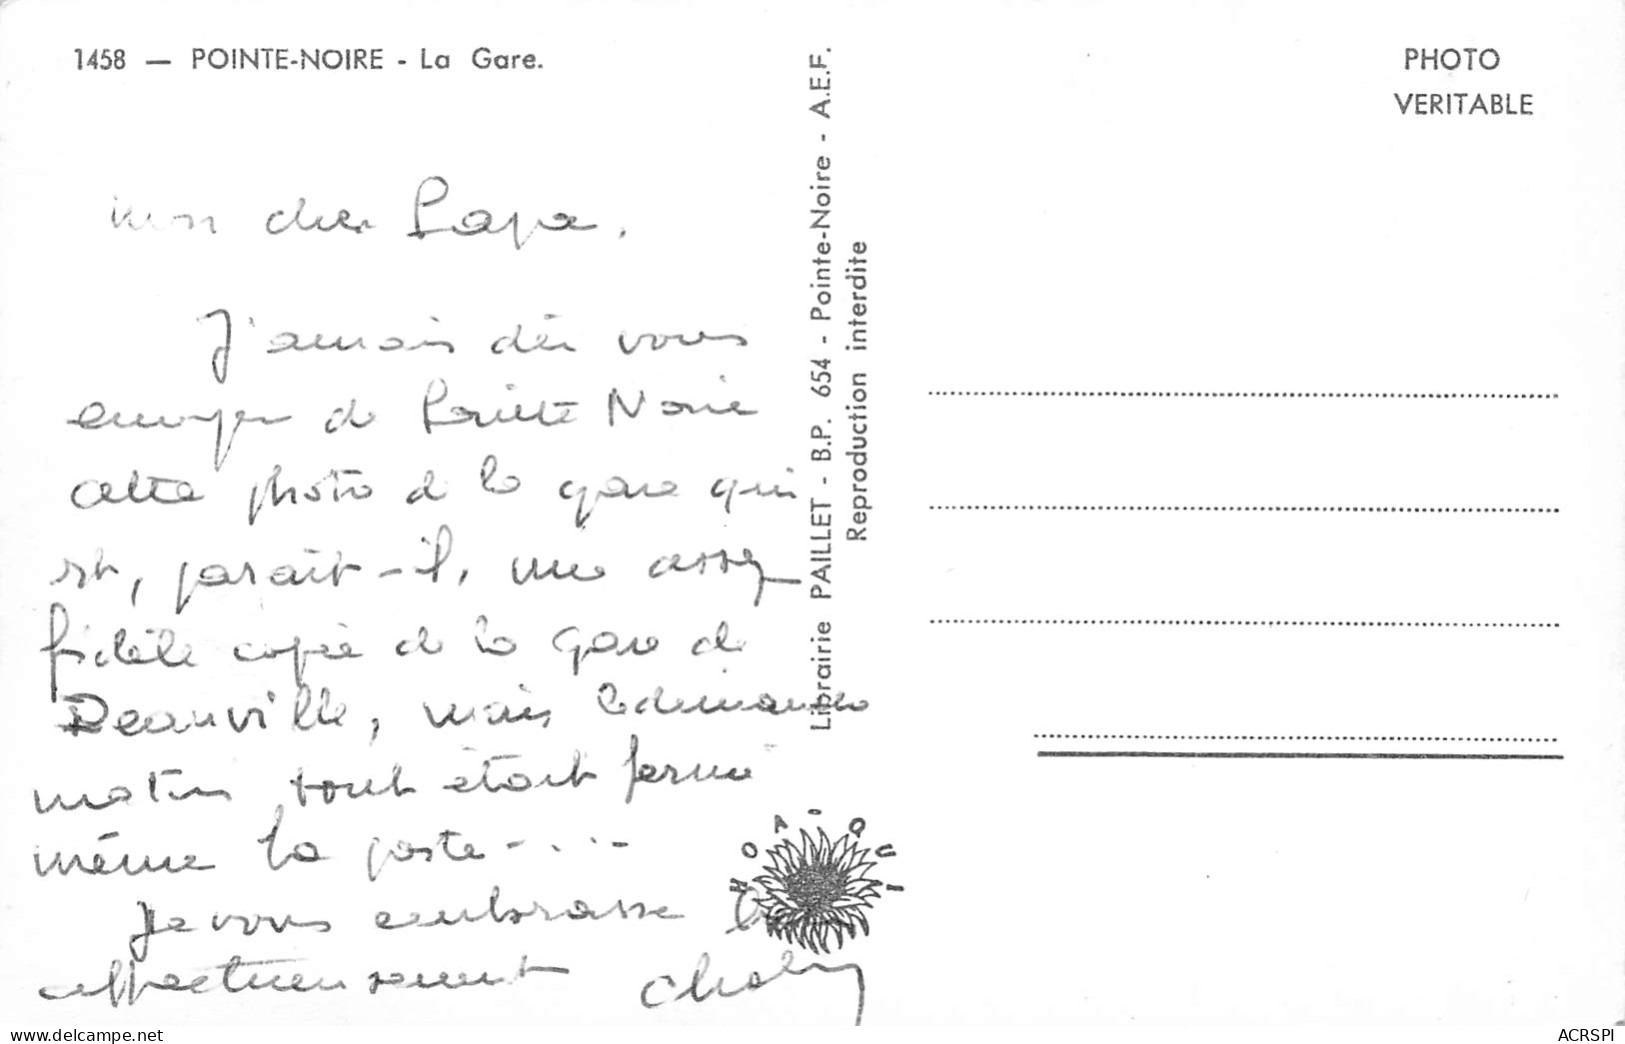 1458 — POINTE-NOIRE - La Gare.
PHOTO
VERITABLE
Mon cher Papa,
J'aurais dû vous
envoyer de Pointe Noire
cette photo de la gare qui
est, paraît-il, une assez
fidèle copie de la gare de
Deauville, mais le dimanche
matin tout était fermé
même la poste - . . . -
Je vous embrasse
affectueusement
Librairie PAILLET - B.P. 654 - Pointe-Noire - A.E.F.
Reproduction interdite
delcampe.net
ACRSPI